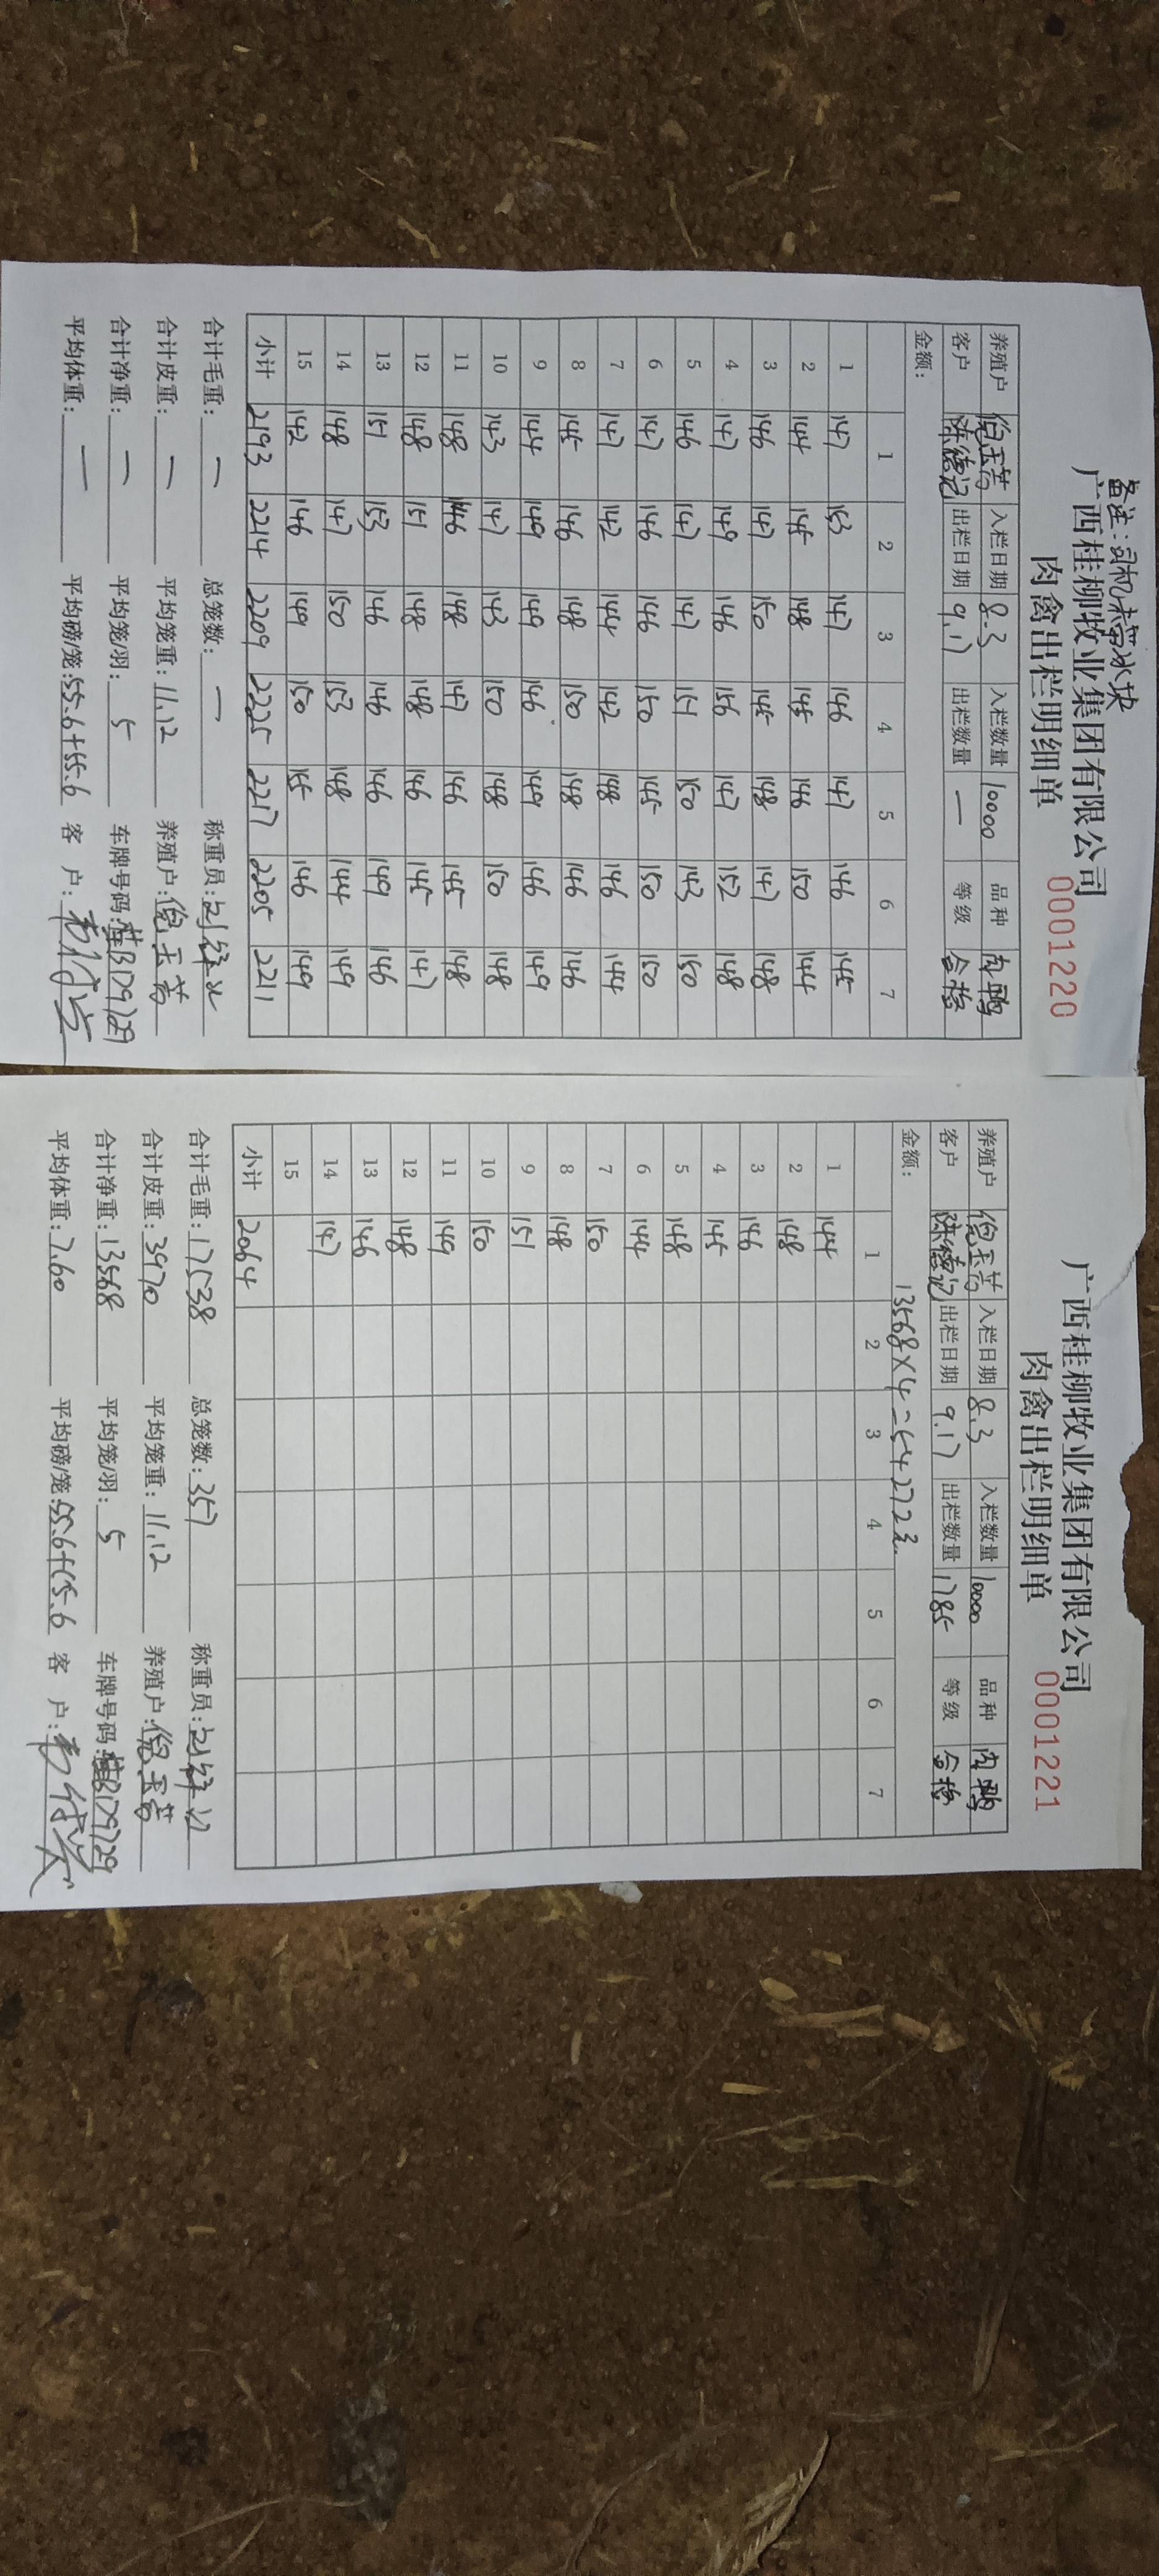 备注:司机未带冰块
广西桂柳牧业集团有限公司
肉禽出栏明细单
0001220
养殖户 倪玉芳 入栏日期 8.3 入栏数量 10000 品种 肉鸭
客户 陈德记 出栏日期 9.17 出栏数量 — 等级 合格
金额:
1 2 3 4 5 6 7
1 147 153 147 146 147 146 145
2 144 145 148 145 146 150 144
3 146 147 150 145 148 147 148
4 147 149 146 156 147 152 148
5 146 147 147 151 150 143 150
6 147 146 146 150 145 150 150
7 147 142 144 142 148 146 144
8 145 146 148 150 148 146 146
9 144 149 149 146 149 146 149
10 143 147 143 150 148 150 148
11 148 146 148 147 146 145 148
12 148 151 148 148 146 145 147
13 151 153 146 146 146 149 146
14 148 147 150 153 148 144 149
15 142 146 149 150 155 146 149
小计 2193 2214 2209 2225 2217 2205 2211
合计毛重: — 总笼数: — 称重员:
合计皮重: — 平均笼重: 11.12 养殖户: 倪玉芳
合计净重: — 平均笼/羽: 5 车牌号码: 桂BD9729
平均体重: — 平均磅/笼: 55.6+55.6 客 户:
广西桂柳牧业集团有限公司
肉禽出栏明细单
0001221
养殖户 倪玉芳 入栏日期 8.3 入栏数量 10000 品种 肉鸭
客户 陈德记 出栏日期 9.17 出栏数量 1785 等级 合格
金额: 13568×4=54272元
1 2 3 4 5 6 7
1 144
2 148
3 146
4 145
5 148
6 144
7 150
8 148
9 151
10 150
11 149
12 148
13 146
14 147
15
小计 2064
合计毛重: 17538 总笼数: 357 称重员:
合计皮重: 3970 平均笼重: 11.12 养殖户: 倪玉芳
合计净重: 13568 平均笼/羽: 5 车牌号码: 桂BD9729
平均体重: 7.60 平均磅/笼: 55.6+55.6 客 户: